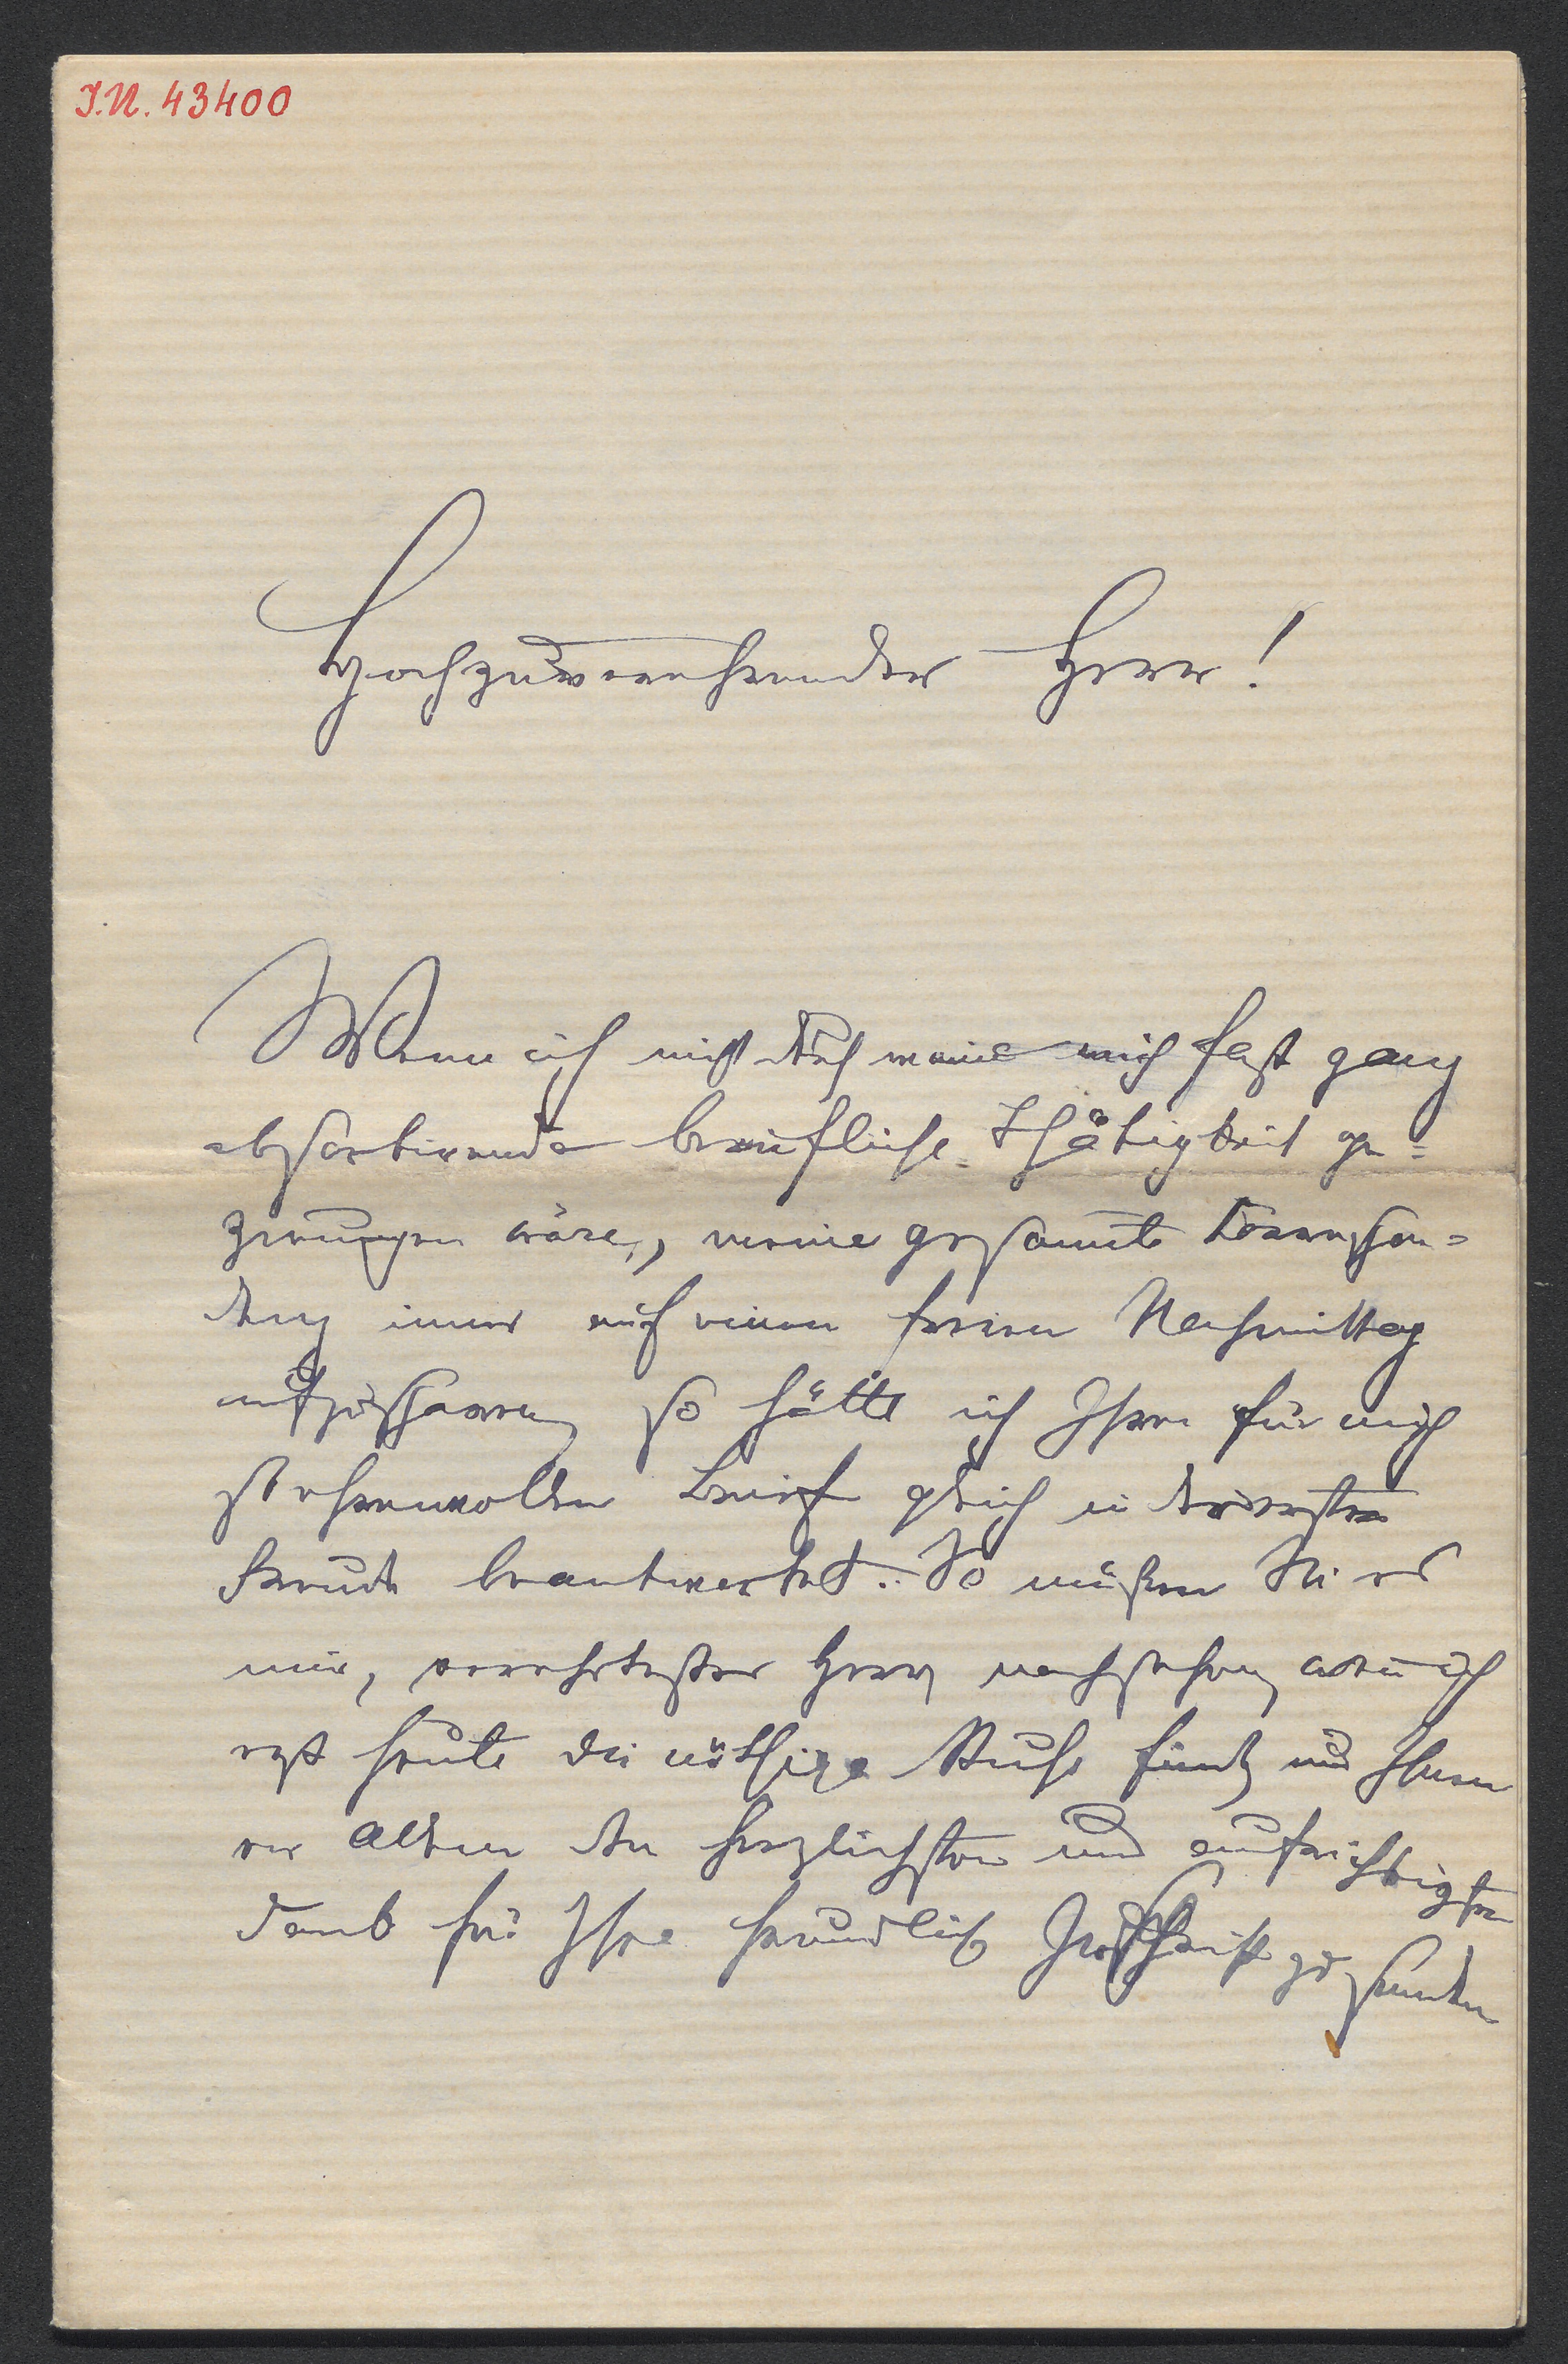 I.N. 43400
Hochzuverehrender Herr!
Wenn ich nicht durch meine mich fast ganz
absorbirende berufliche Thätigkeit ge=
zwungen wäre, meine gesammte Correspon=
denz immer auf einen freien Nachmittag
aufzusparen, so hätte ich Ihren für mich
so ehrenvollen Brief gleich in der ersten
Freude beantwortet. So müßen Sie es
mir, verehrtester Herr, nachsehen, wenn ich
erst heute die nöthige Muße finde, um Ihnen
vor Allem den herzlichsten und aufrichtigsten
Dank für Ihre freundliche Zuschrift zu senden